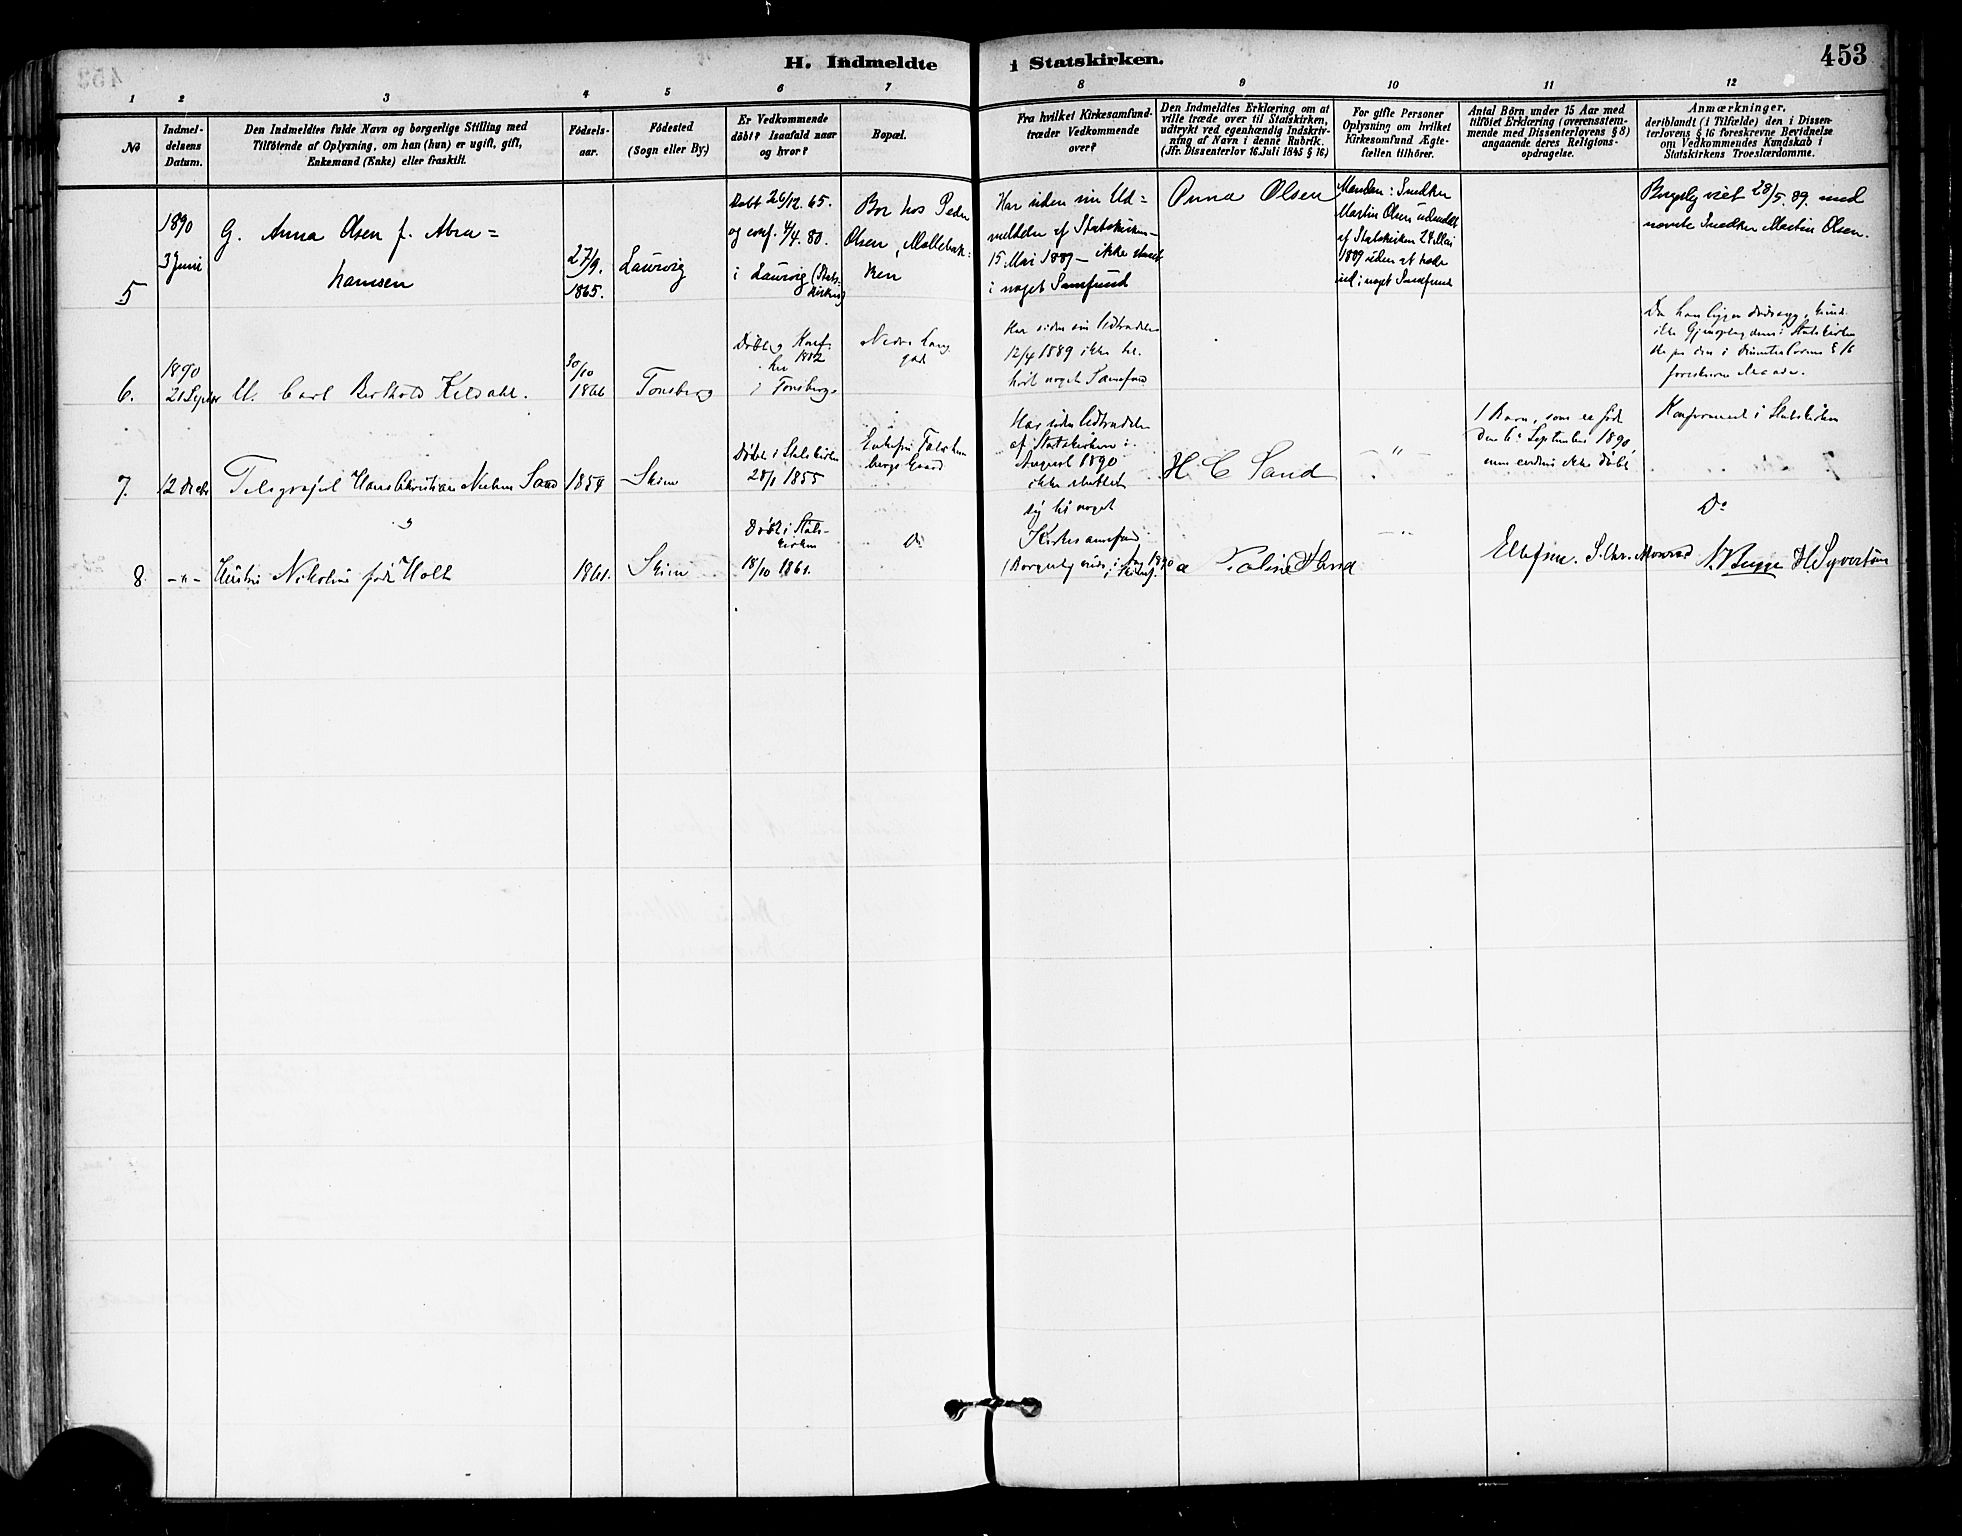 453
H. Indmeldte i Statskirken.
1 2 3 4 5 6 7 8 9 10 11 12
No
Indmel-
delsens
Datum.
Den Indmeldtes fulde Navn og borgerlige Stilling med
Tilföiende af Oplysning, om han (hun) er ugift, gift,
Enkemand (Enke) eller fraskilt.
Födsels-
aar.
Födested
(Sogn eller By.)
Er Vedkommende
döbt? Isaafald naar
og hvor?
Bopæl.
Fra hvilket Kirkesamfund-
træder Vedkommende
over?
Den Indmeldtes Erklæring om at
ville træde over til Statskirken,
udtrykt ved egenhændig Indskriv-
ning af Navn i denne Rubrik.
(Jfr. Dissenterlov 16. Juli 1845 § 16.)
For gifte Personer
Oplysning om hvilket
Kirkesamfund Ægte-
fællen tilhörer.
Antal Börn under 15 Aar med
tilföiet Erklæring (overensstem-
mende med Dissenterlovens § 8)
angaaende deres Religions-
opdragelse.
Anmærkninger,
deriblandt (i Tilfælde) den i Dissen-
terlovens § 16 foreskrevne Bevidnelse
om Vedkommendes Kundskab i
Statskirkens Troeslærdomme.
5
1890
3 Juni
G. Anna Olsen f. Abra=
hamsen
27/9.
1865.
Laurvig
Döbt 26/12. 65.
og conf. 4/4. 80.
i Laurvig (Stats-
kirken)
Bor hos Peder
Olsen, Möllebak-
ken
Har siden sin Ud=
meldelse af Statskirken
15 Mai 1889 - ikke staaet
i noget Samfund
Anna Olsen
Manden: Snedker
Martin Olsen udmeldt
af Statskirken 24 Mai
1889 uden at træde
ind i noget Samfund
Borgerlig viet 28/5. 89. med
nævnte Snedker Martin Olsen.
6.
1890
21 Septbr
U. Carl Berthold Keldahl.
30/10
1866
Tonsberg
Döbt og Konf.
1882
i Tonsberg
Nedre Lang
gad
Har siden sin Udtrædelse
12/4 1889 ikke til-
hört noget Samfund
Da han ligger dödssyg, kunde
ikke Gjenoptagelsen i Statskirken
ske paa den i Dissenterlovens § 16
foreskrevne Maade.
7.
12 Decbr
Telegrafist Hans Christian Nielsen Sand
1854
Skien
Döbt i Statskirken
28/1 1855
Enkefru Falkenbergs Gaard
Har siden Udtrædelsen
af Statskirken i
August 1890
ikke sluttet
sig til noget
Kirkesamfund
H C Sand
-"-
1 Barn, som er födt
den 6te September 1890,
men endnu ikke döbt
Konfirmeret i Statskirken
8.
-"-
Hustru Nikoline födt Holt
1861.
Skien
Döbt i Stats-
kirken
18/10 1861.
Do
(Borgerlig viede i Aug 1890
Nicoline Sand
-"-
Ellefsen. S. Chr. Monrad N. Bugge H. Syvertsen
Do